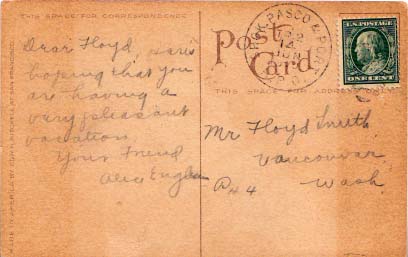 THIS SPACE FOR CORRESPONDENCE
Dear Floyd,
hoping that you
are having a
very pleasant
vacation
Your Friend
Alice
Post
Card
THIS SPACE FOR ADDRESS ONLY
PASCO &
JUN
U.S. POSTAGE
ONE CENT
Mr Floyd Smith
Vancouver
Wash